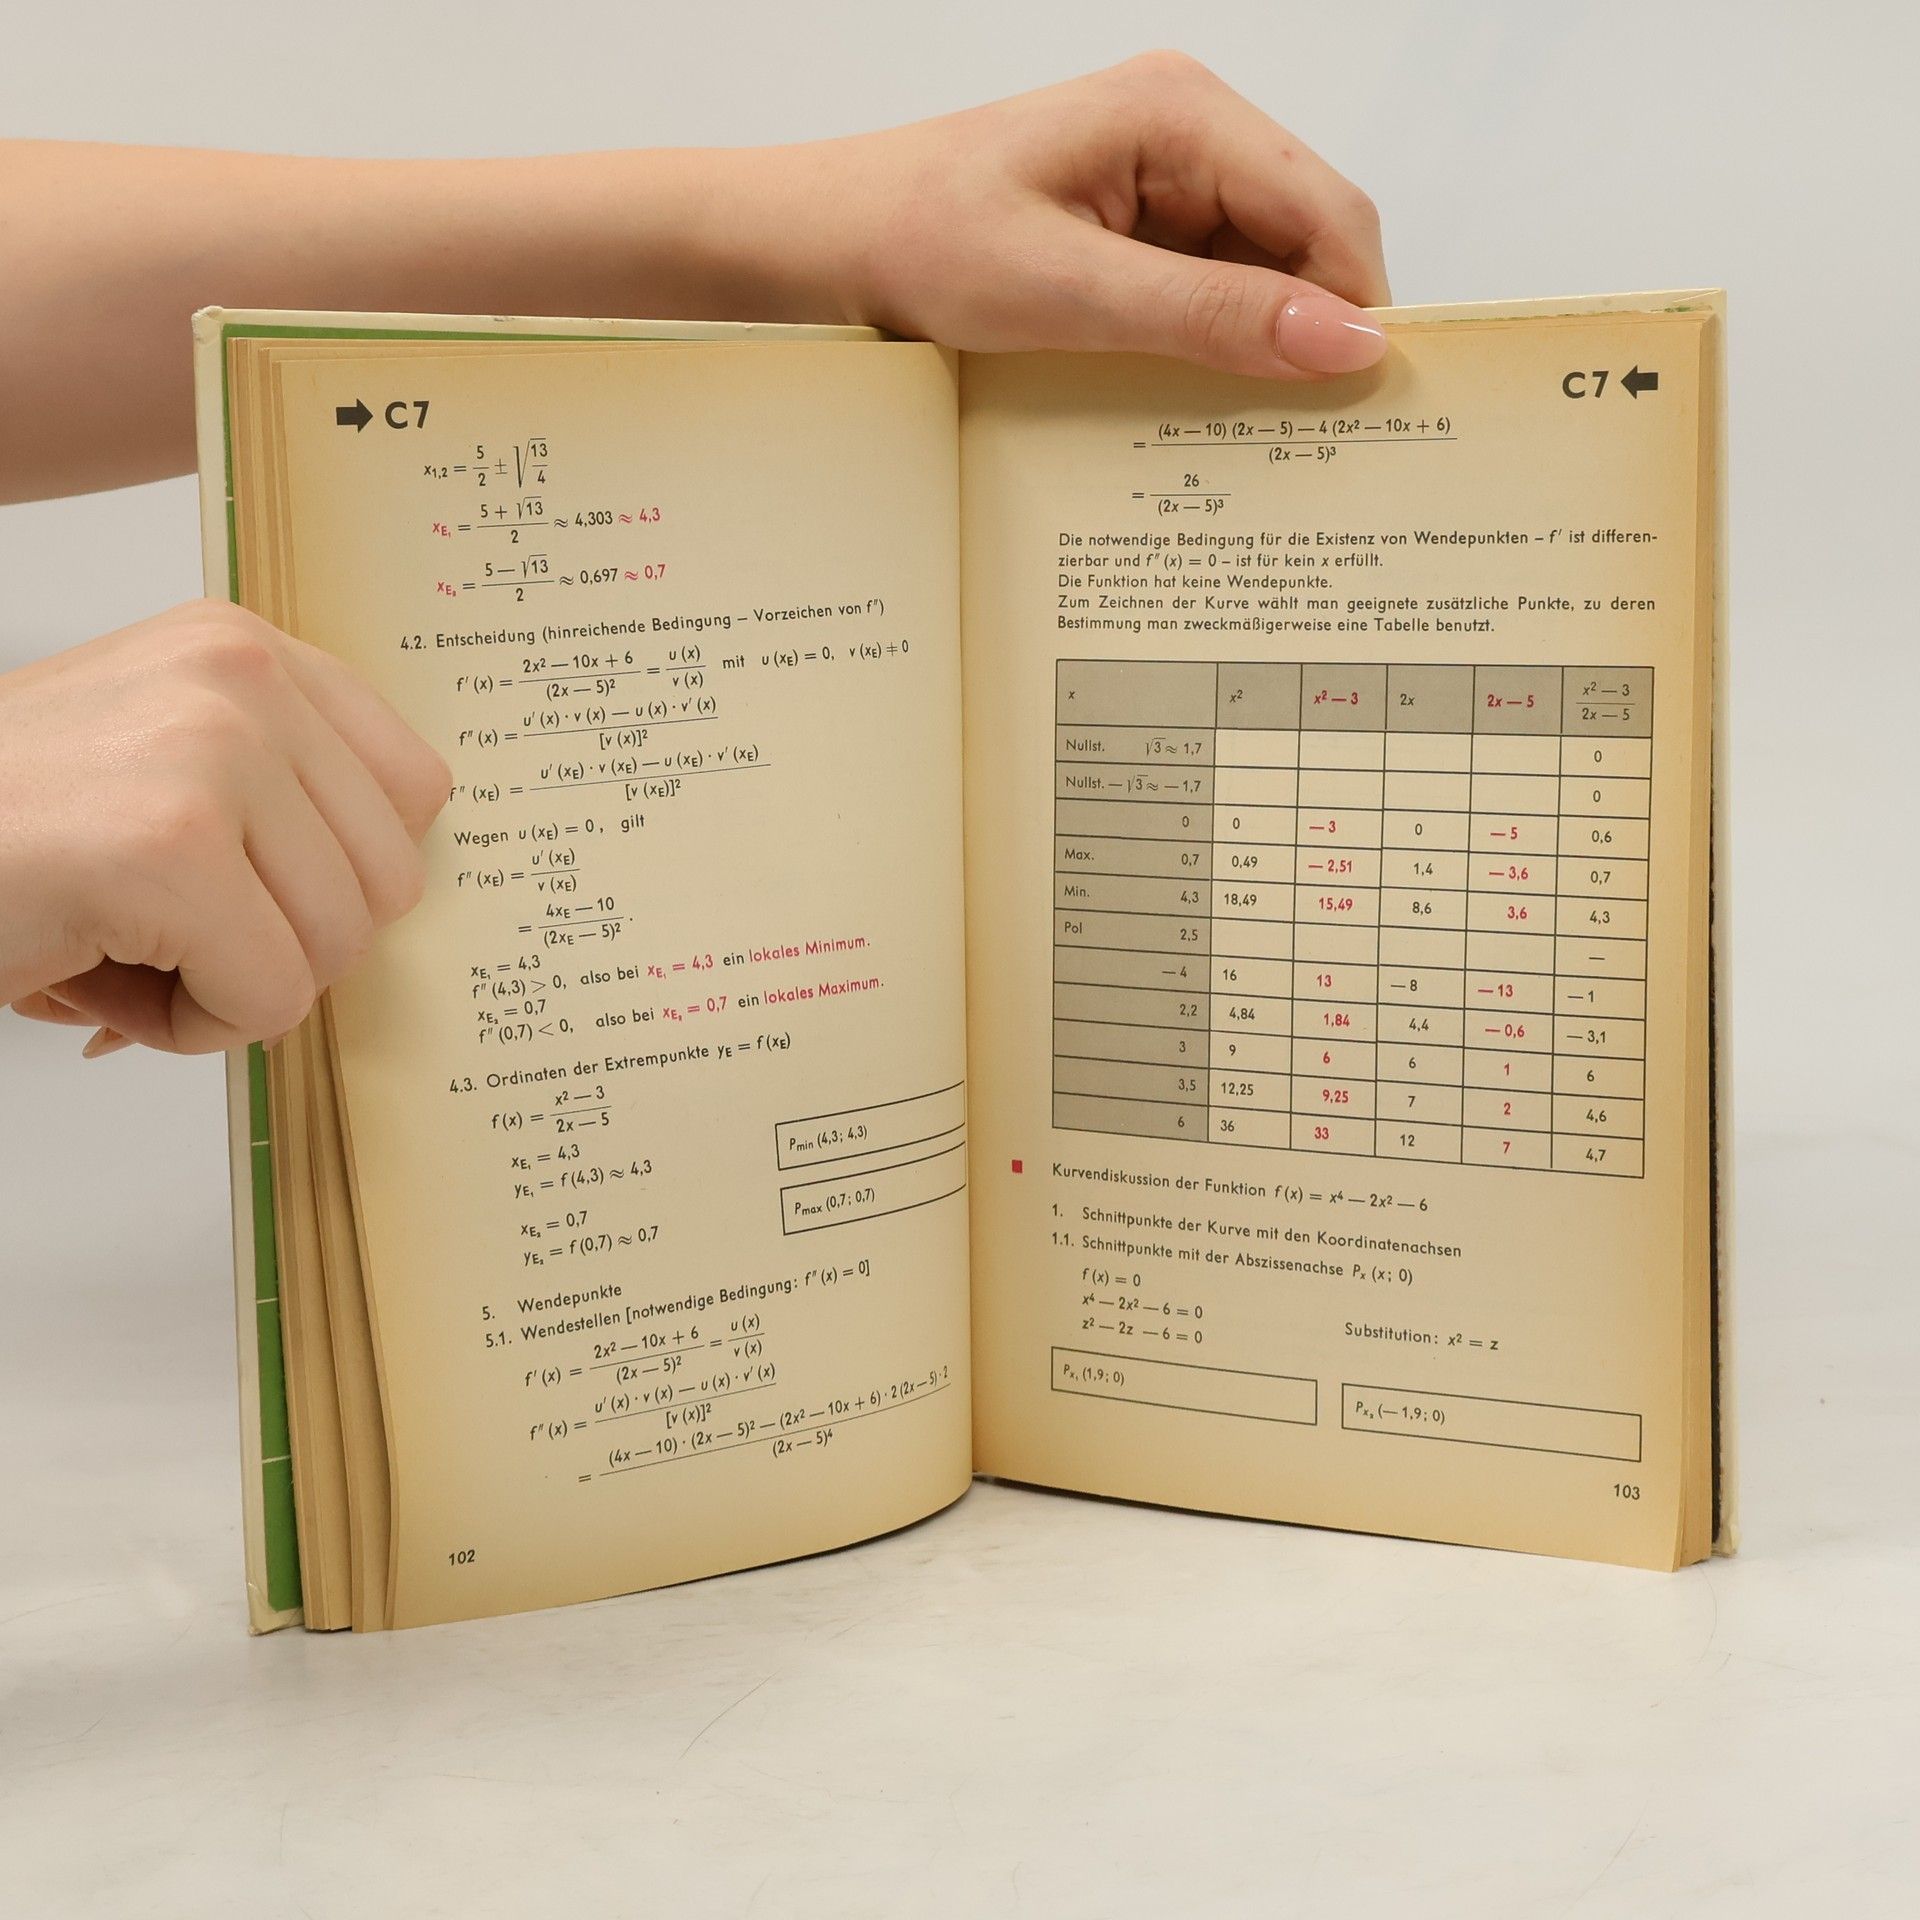 C7
x₁,₂ = 5/2 ± √(13/4)
x_E₁ = (5 + √13)/2 ≈ 4,303 ≈ 4,3
x_E₂ = (5 — √13)/2 ≈ 0,697 ≈ 0,7
4.2. Entscheidung (hinreichende Bedingung – Vorzeichen von f″)
f′ (x) = (2x² — 10x + 6)/(2x — 5)² = u (x)/v (x) mit u (x_E) = 0, v (x_E) ≠ 0
f″ (x) = (u′ (x) · v (x) — u (x) · v′ (x))/[v (x)]²
f″ (x_E) = (u′ (x_E) · v (x_E) — u (x_E) · v′ (x_E))/[v (x_E)]²
Wegen u (x_E) = 0, gilt
f″ (x_E) = u′ (x_E)/v (x_E)
= (4x_E — 10)/(2x_E — 5)² .
x_E₁ = 4,3
f″ (4,3) > 0, also bei x_E₁ = 4,3 ein lokales Minimum.
x_E₂ = 0,7
f″ (0,7) < 0, also bei x_E₂ = 0,7 ein lokales Maximum.
4.3. Ordinaten der Extrempunkte y_E = f (x_E)
f (x) = (x² — 3)/(2x — 5)
x_E₁ = 4,3
y_E₁ = f (4,3) ≈ 4,3
P_min (4,3; 4,3)
x_E₂ = 0,7
y_E₂ = f (0,7) ≈ 0,7
P_max (0,7; 0,7)
5. Wendepunkte
5.1. Wendestellen [notwendige Bedingung: f″ (x) = 0]
f′ (x) = (2x² — 10x + 6)/(2x — 5)² = u (x)/v (x)
f″ (x) = (u′ (x) · v (x) — u (x) · v′ (x))/[v (x)]²
= ((4x — 10) · (2x — 5)² — (2x² — 10x + 6) · 2 (2x — 5) · 2)/(2x — 5)⁴
102
C7
= ((4x — 10) (2x — 5) — 4 (2x² — 10x + 6))/(2x — 5)³
= 26/(2x — 5)³
Die notwendige Bedingung für die Existenz von Wendepunkten – f′ ist differen-
zierbar und f″ (x) = 0 – ist für kein x erfüllt.
Die Funktion hat keine Wendepunkte.
Zum Zeichnen der Kurve wählt man geeignete zusätzliche Punkte, zu deren
Bestimmung man zweckmäßigerweise eine Tabelle benutzt.
x x² x² — 3 2x 2x — 5 (x² — 3)/(2x — 5)
Nullst. √3 ≈ 1,7 0
Nullst. — √3 ≈ — 1,7 0
0 0 — 3 0 — 5 0,6
Max. 0,7 0,49 — 2,51 1,4 — 3,6 0,7
Min. 4,3 18,49 15,49 8,6 3,6 4,3
Pol 2,5 —
— 4 16 13 — 8 — 13 — 1
2,2 4,84 1,84 4,4 — 0,6 — 3,1
3 9 6 6 1 6
3,5 12,25 9,25 7 2 4,6
6 36 33 12 7 4,7
Kurvendiskussion der Funktion f (x) = x⁴ — 2x² — 6
1. Schnittpunkte der Kurve mit den Koordinatenachsen
1.1. Schnittpunkte mit der Abszissenachse Pₓ (x; 0)
f (x) = 0
x⁴ — 2x² — 6 = 0
z² — 2z — 6 = 0 Substitution: x² = z
P_x₁ (1,9; 0)
P_x₂ (— 1,9; 0)
103